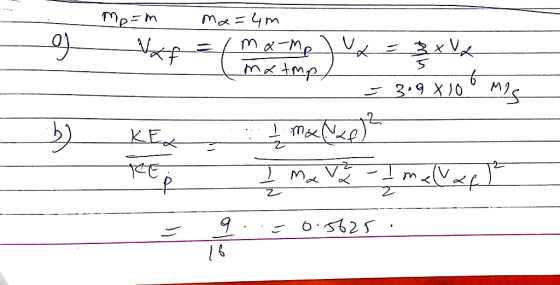 mp = m mα = 4m
a) Vαf = (mα - mp / mα + mp) Vα = 3/5 × Vα
= 3.9 × 10^6 m/s
b) KEα / KEp = 1/2 mα(Vαf)^2 / 1/2 mα Vα^2 - 1/2 mα(Vαf)^2
= 9/16 = 0.5625.